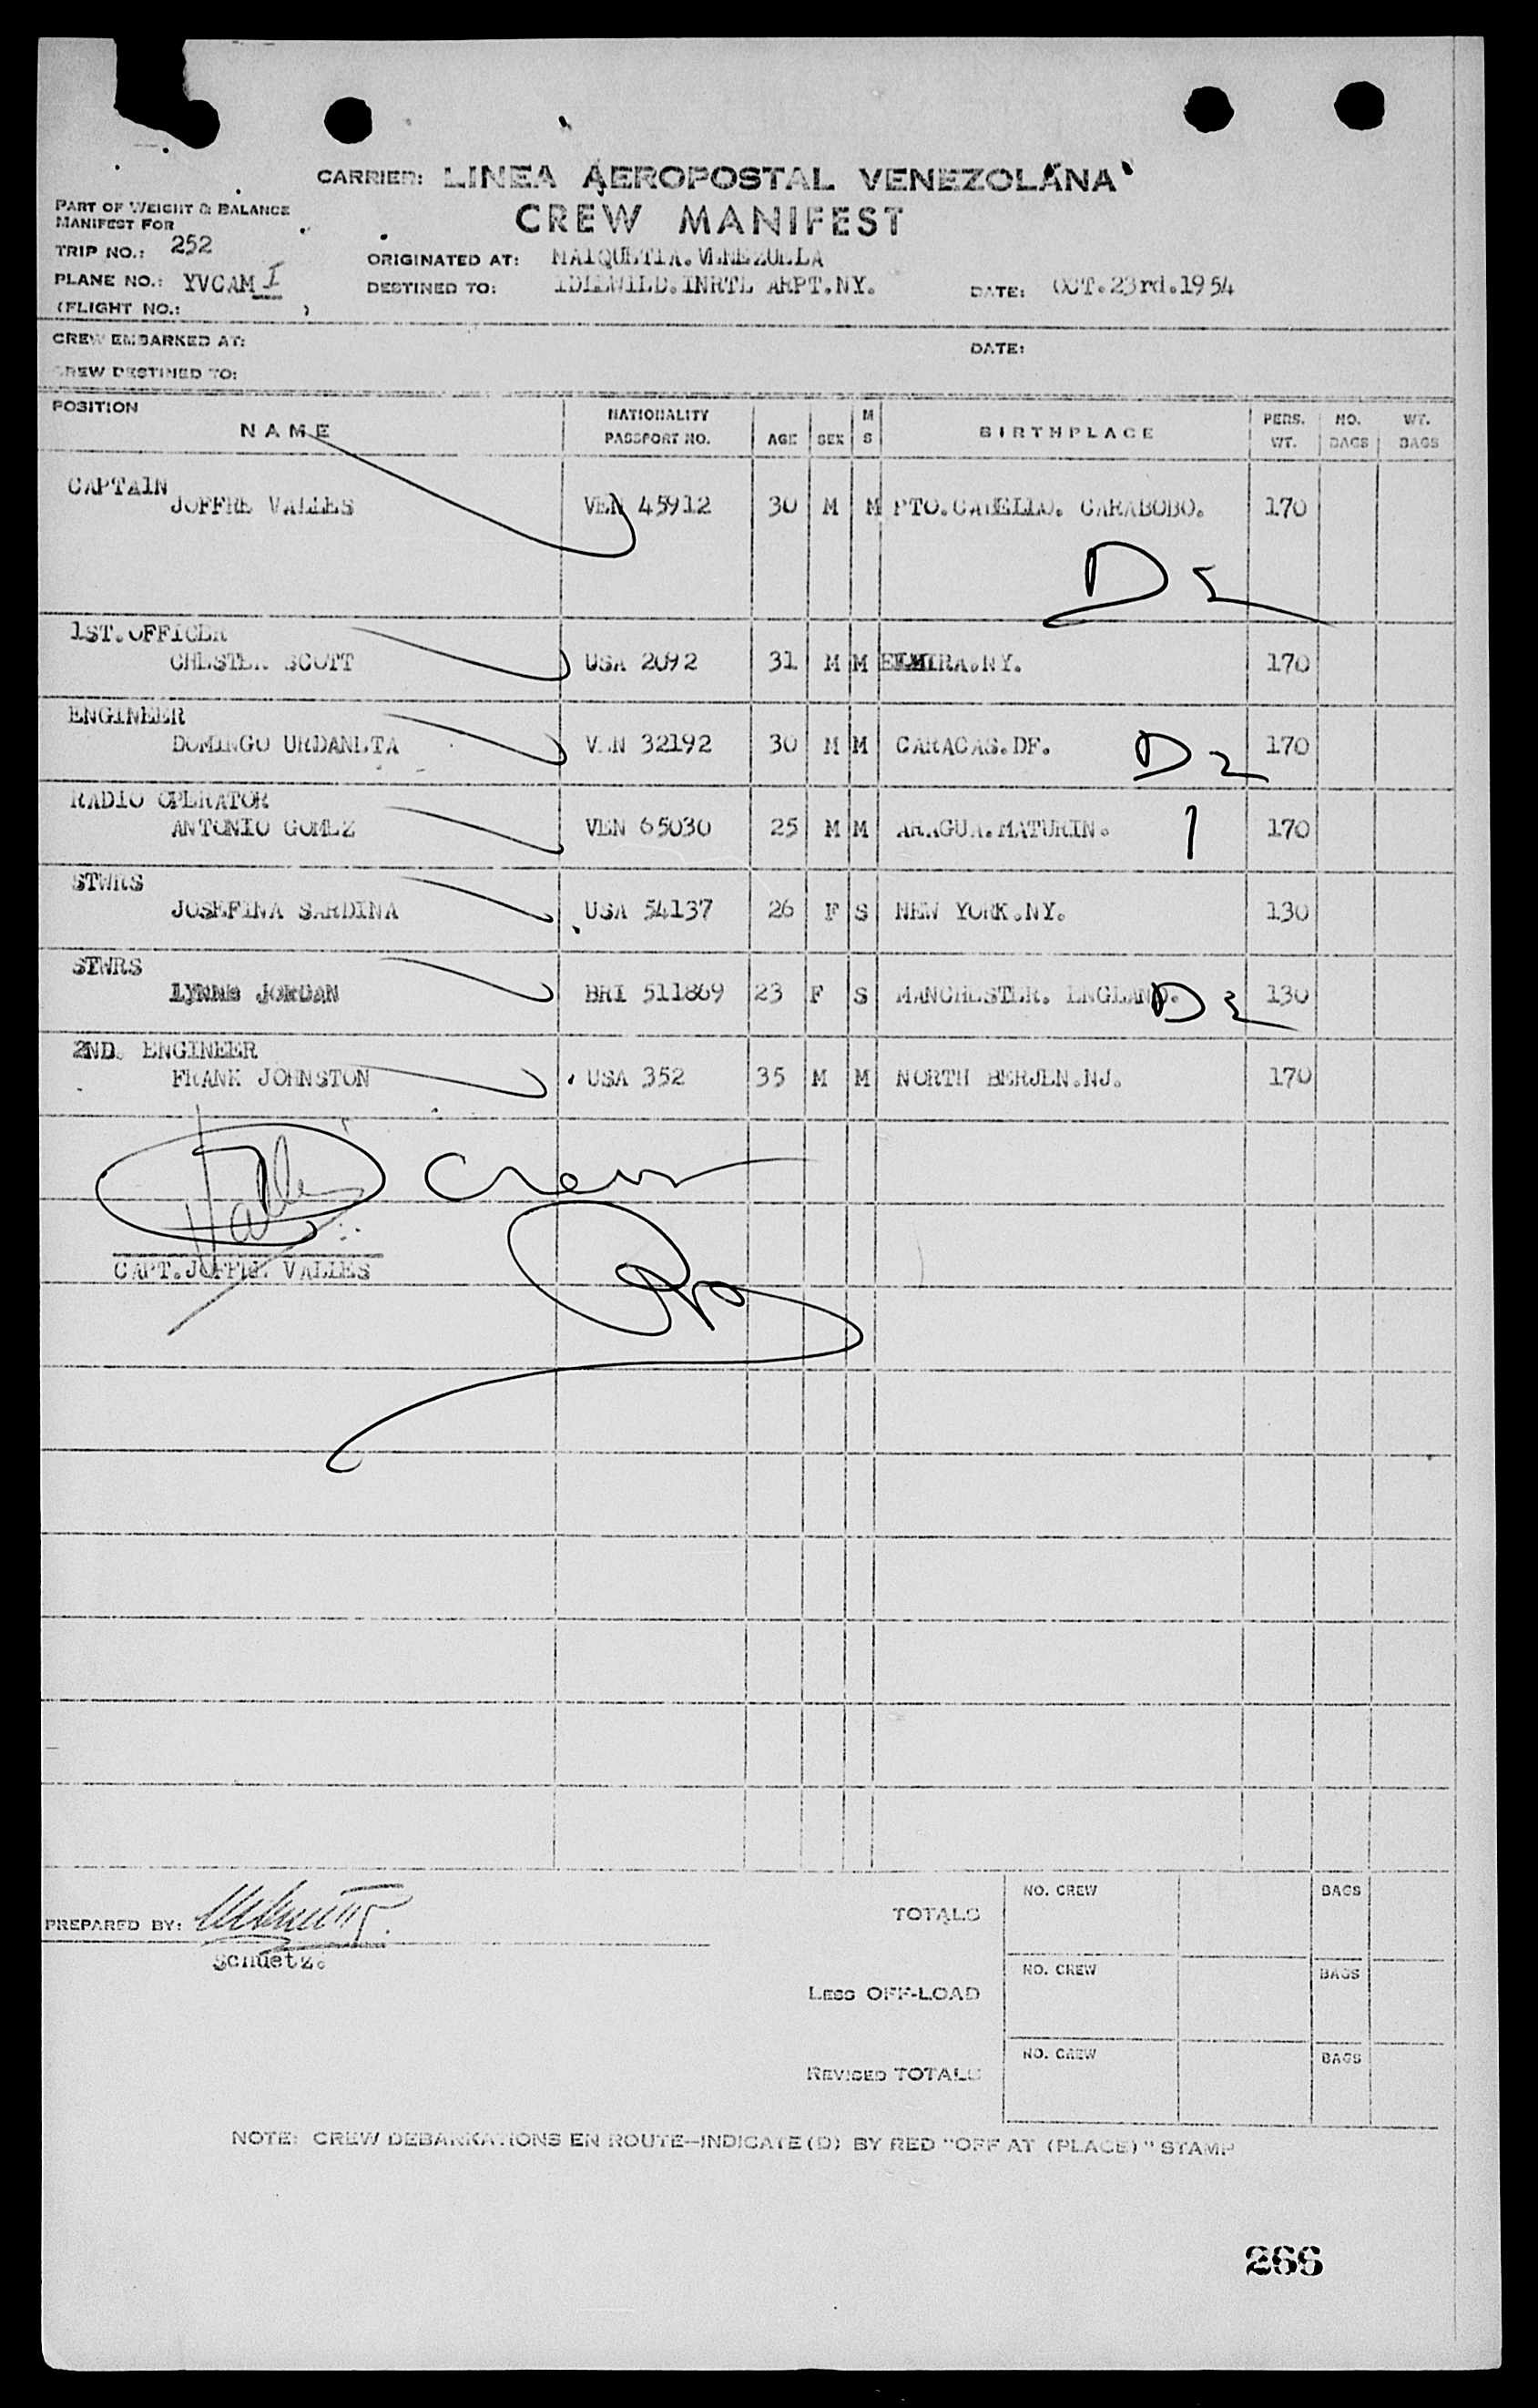 CARRIER: LINEA AEROPOSTAL VENEZOLANA
CREW MANIFEST
PART OF WEIGHT & BALANCE
MANIFEST FOR
TRIP NO.: 252
ORIGINATED AT: MAIQUETIA. VENEZUELA
PLANE NO.: YVCAM I
DESTINED TO: IDLEWILD. INRTL ARPT. NY. DATE: OCT. 23rd. 1954
(FLIGHT NO.: )
CREW EMBARKED AT: DATE:
CREW DESTINED TO:
POSITION NAME NATIONALITY PASSPORT NO. AGE SEX M S BIRTHPLACE PERS. WT. NO. BAGS WT. BAGS
CAPTAIN
JOFFRE VALLES VEN 45912 30 M M PTO. CABELLO. CARABOBO. 170
D2
1ST. OFFICER
CHESTER SCOTT USA 2092 31 M M ELMIRA. NY. 170
ENGINEER
DOMINGO URDANETA VEN 32192 30 M M CARACAS. DF. D2 170
RADIO OPERATOR
ANTONIO GOMEZ VEN 65030 25 M M ARAGUA. MATURIN. 1 170
STWRS
JOSEFINA SARDINA USA 54137 26 F S NEW YORK. NY. 130
STWRS
LYNNE JORDAN BRI 511869 23 F S MANCHESTER. ENGLAND. D2 130
2ND. ENGINEER
FRANK JOHNSTON USA 352 35 M M NORTH BERJEN. NJ. 170
Valles Crew
CAPT. JOFFRE VALLES
PREPARED BY:
Schuetz.
TOTALS NO. CREW BAGS
LESS OFF-LOAD NO. CREW BAGS
REVISED TOTALS NO. CREW BAGS
NOTE: CREW DEBARKATIONS EN ROUTE—INDICATE (D) BY RED "OFF AT (PLACE)" STAMP
266